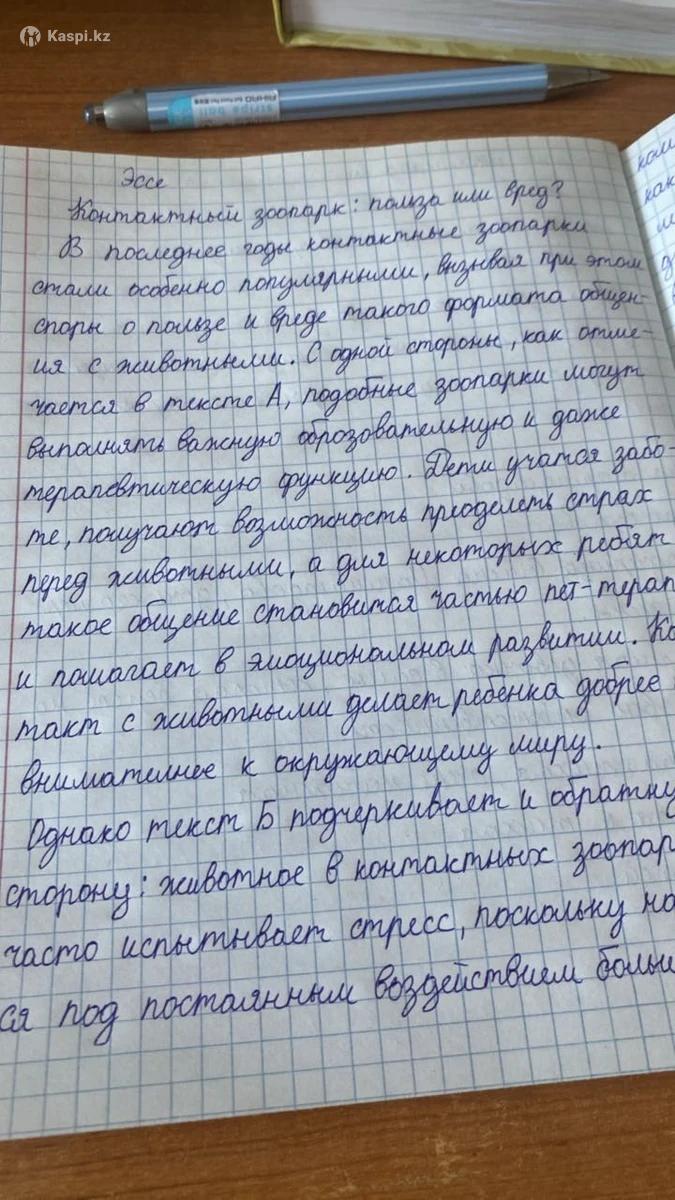 Kaspi.kz
stripe ball
Эссе
Контактный зоопарк: польза или вред?
В последнее годы контактные зоопарки
стали особенно популярными, вызывая при этом
споры о пользе и вреде такого формата общен-
ия с животными. С одной стороны, как отме-
чается в тексте А, подобные зоопарки могут
выполнять важную оброзовательную и даже
терапевтическую функцию. Дети учатся забо-
те, получают возможность преодолеть страх
перед животными, а для некоторых ребят
такое общение становится частью пет-терап
и помогает в эмоциональном развитии. Ко
такт с животными делает ребёнка добрее
внимателнее к окружающему миру.
Однако текст Б подчеркивает и обратну
сторону: животное в контактных зоопар
часто испытывает стресс, поскольку на
ся под постаянным воздействием больш
как